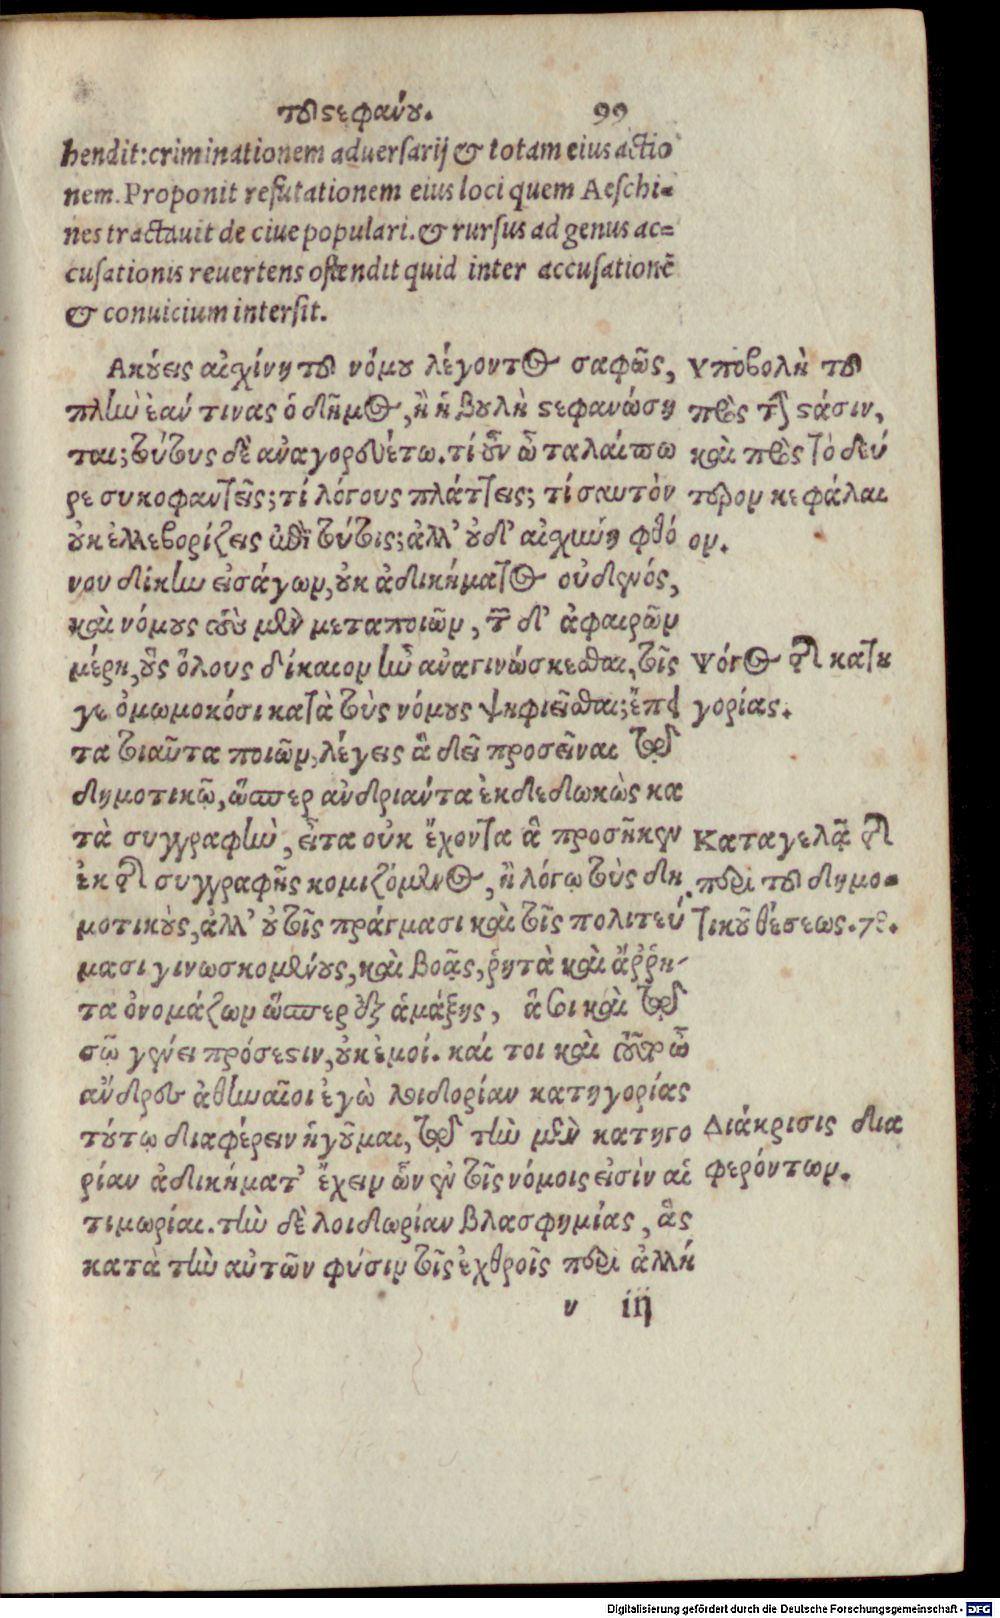 τοῦ στεφάνου. 99
hendit: criminationem aduersarij & totam eius actio
nem. Proponit refutationem eius loci quem Aeschi=
nes tractauit de ciue populari. & rursus ad genus ac=
cusationis reuertens ostendit quid inter accusationē
& conuicium intersit.
Ακούεις αἰχίνη τοῦ νόμου λέγοντος σαφῶς,
πλὴν ἐάν τινας ὁ δῆμος, ἢ ἡ βουλὴ στεφανώση
ται; τούτους δὲ ἀναγορευέτω. τί οὖν ὦ ταλαίπω
ρε συκοφαντεῖς; τί λόγους πλάττεις; τί σαυτὸν
οὐκ ἐλλεβορίζεις ἐπὶ τούτοις; ἀλλ' οὐδ' αἰσχύνη φθό
νου δίκην εἰσάγων, οὐκ ἀδικήματος οὐδενός,
καὶ νόμους τοὺς μὲν μεταποιῶν, τῶν δ' ἀφαιρῶν
μέρη, οὓς ὅλους δίκαιον ἦν ἀναγινώσκεσθαι, τοῖς
γε ὀμωμοκόσι κατὰ τοὺς νόμους ψηφιεῖσθαι; ἔπει
τα τοιαῦτα ποιῶν, λέγεις ἃ δεῖ προσεῖναι τῷ
δημοτικῷ, ὥσπερ ἀνδριάντα ἐκδεδωκὼς κα
τὰ συγγραφὴν, εἶτα οὐκ ἔχοντα ἃ προσῆκεν
ἐκ τῆς συγγραφῆς κομιζόμενος, ἢ λόγῳ τοὺς δη
μοτικοὺς, ἀλλ' οὐ τοῖς πράγμασι καὶ τοῖς πολιτεύ
μασι γινωσκομένους, καὶ βοᾷς, ῥητὰ καὶ ἄῤῥη-
τα ὀνομάζων ὥσπερ ἐξ ἁμάξης, ἃ σοι καὶ τῷ
σῷ γένει πρόσεστιν, οὐκ ἐμοί. καί τοι καὶ τοῦτο ὦ
ἄνδρες ἀθηναῖοι ἐγὼ λοιδορίαν κατηγορίας
τούτῳ διαφέρειν ἡγοῦμαι, τῷ τὴν μὲν κατηγο
ρίαν ἀδικήματ' ἔχειν ὧν ἐν τοῖς νόμοις εἰσὶν αἱ
τιμωρίαι. τὴν δὲ λοιδωρίαν βλασφημίας, ἃς
κατὰ τὴν αὑτῶν φύσιν τοῖς ἐχθροῖς περὶ ἀλλή
Υποβολὴ τοῦ
πρὸς τὴν στάσιν,
καὶ πρὸς τὸ δεύ
τερον κεφάλαι
ον.
Ψόγος τῆς κατη
γορίας.
Καταγελᾷ τῆς
περὶ τοῦ δημο=
τικοῦ θέσεως.
Διάκρισις δια
φερόντων.
v iij
Digitalisierung gefördert durch die Deutsche Forschungsgemeinschaft - DFG